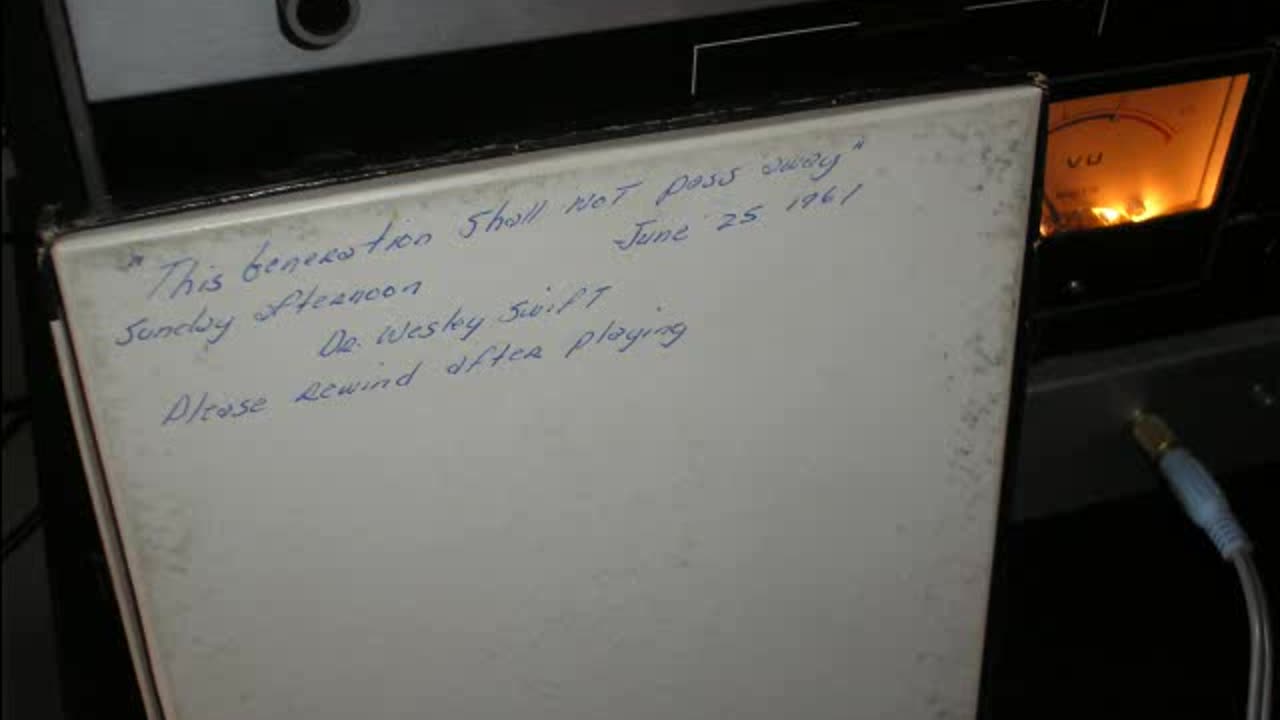 "This Generation Shall Not pass away"
Sunday afternoon June 25 1961
Dr. Wesley Swift
Please rewind after playing
VU